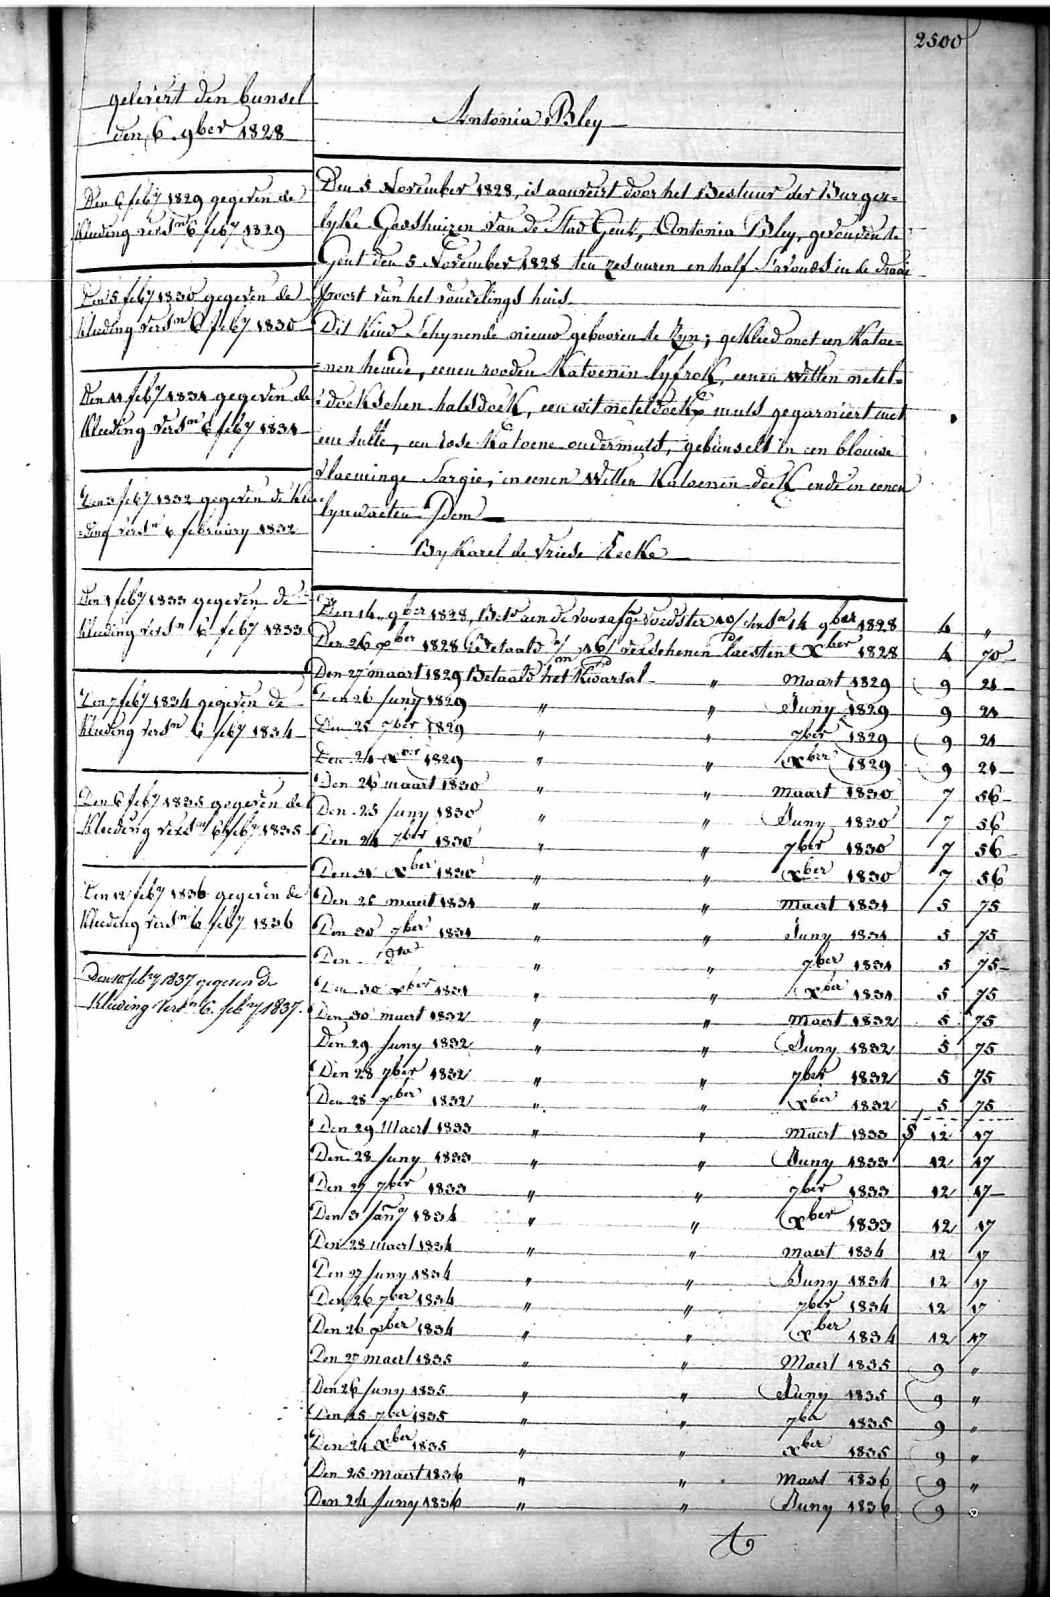 2500
gelevert den bunsel
den 6 9ber 1828
Antonia Bley
Den 6 feb7 1829 gegeven de
kleeding versn 6 feb7 1829
Den 5 feb7 1830 gegeven de
kleeding versn 6 feb7 1830
Den 11 feb7 1831 gegeven de
kleeding versn 6 feb7 1831
Den 3 feb7 1832 gegeven de klee
=ding versn 6 february 1832
Den 1 feb7 1833 gegeven de
kleeding versn 6 feb7 1833
Den 7 feb7 1834 gegeven de
kleeding versn 6 feb7 1834
Den 6 feb7 1835 gegeven de
kleeding versn 6 feb7 1835
Den 12 feb7 1836 gegeven de
kleeding versn 6 feb7 1836
Den 10 febry 1837 gegeven de
Kleeding versn 6. febry 1837.
Den 5 November 1828, is aanveirt door het Bestuur der Burger=
lyke Godshuizen van de Stad Gent, Antonia Bley, gevonden te
Gent den 5 November 1828 ten zes uuren en half s'avonds in de draai
poort van het vondelings huis
Dit kind schynende nieuw gebooren te zyn; gekleed met een katoe=
=nen hemde, eenen rooden katoenen lyfrok, eenen witten netel=
=doekschen halsdoek, een wit neteldoeks muts gegarniert met
een tulle, een rose katoene ondermuts, gebunselt in een blouwe
vlaeminge sargie, in eenen witten katoenen doek ende in eenen
lynwaeten Idem
By Karel de Vriese Eecke
Den 14 9ber 1828, Bet. aen de voorafge voedster 10/ versn 14 9ber 1828 4 "
Den 26 xber 1828 Betaald 16/ verschenen laesten xber 1828 4 70
Den 27 maart 1829 Betaald het kwartal " Maart 1829 9 21
Den 26 Juny 1829 " " Juny 1829 9 21
Den 25 7ber 1829 " " 7ber 1829 9 21
Den 24 xber 1829 " " xber 1829 9 21
Den 26 maart 1830 " " Maart 1830 7 56
Den 25 Juny 1830 " " Juny 1830 7 56
Den 24 7ber 1830 " " 7ber 1830 7 56
Den 31 xber 1830 " " xber 1830 7 56
Den 25 maert 1831 " " Maert 1831 5 75
Den 30 7ber 1831 " " Juny 1831 5 75
Den dto " " 7ber 1831 5 75
Den 30 xber 1831 " " xber 1831 5 75
Den 30 maert 1832 " " Maert 1832 5 75
Den 29 Juny 1832 " " Juny 1832 5 75
Den 28 7ber 1832 " " 7ber 1832 5 75
Den 28 xber 1832 " " xber 1832 5 75
Den 29 Maert 1833 " " Maert 1833 12 17
Den 28 Juny 1833 " " Juny 1833 12 17
Den 27 7ber 1833 " " 7ber 1833 12 17
Den 3 Jany 1834 " " xber 1833 12 17
Den 28 Maert 1834 " " Maert 1834 12 17
Den 27 Juny 1834 " " Juny 1834 12 17
Den 26 7ber 1834 " " 7ber 1834 12 17
Den 26 xber 1834 " " xber 1834 12 17
Den 27 maert 1835 " " Maert 1835 9 "
Den 26 Juny 1835 " " Juny 1835 9 "
Den 25 7ber 1835 " " 7ber 1835 9 "
Den 24 xber 1835 " " xber 1835 9 "
Den 25 maert 1836 " " Maert 1836 9 "
Den 24 Juny 1836 " " Juny 1836 9 "